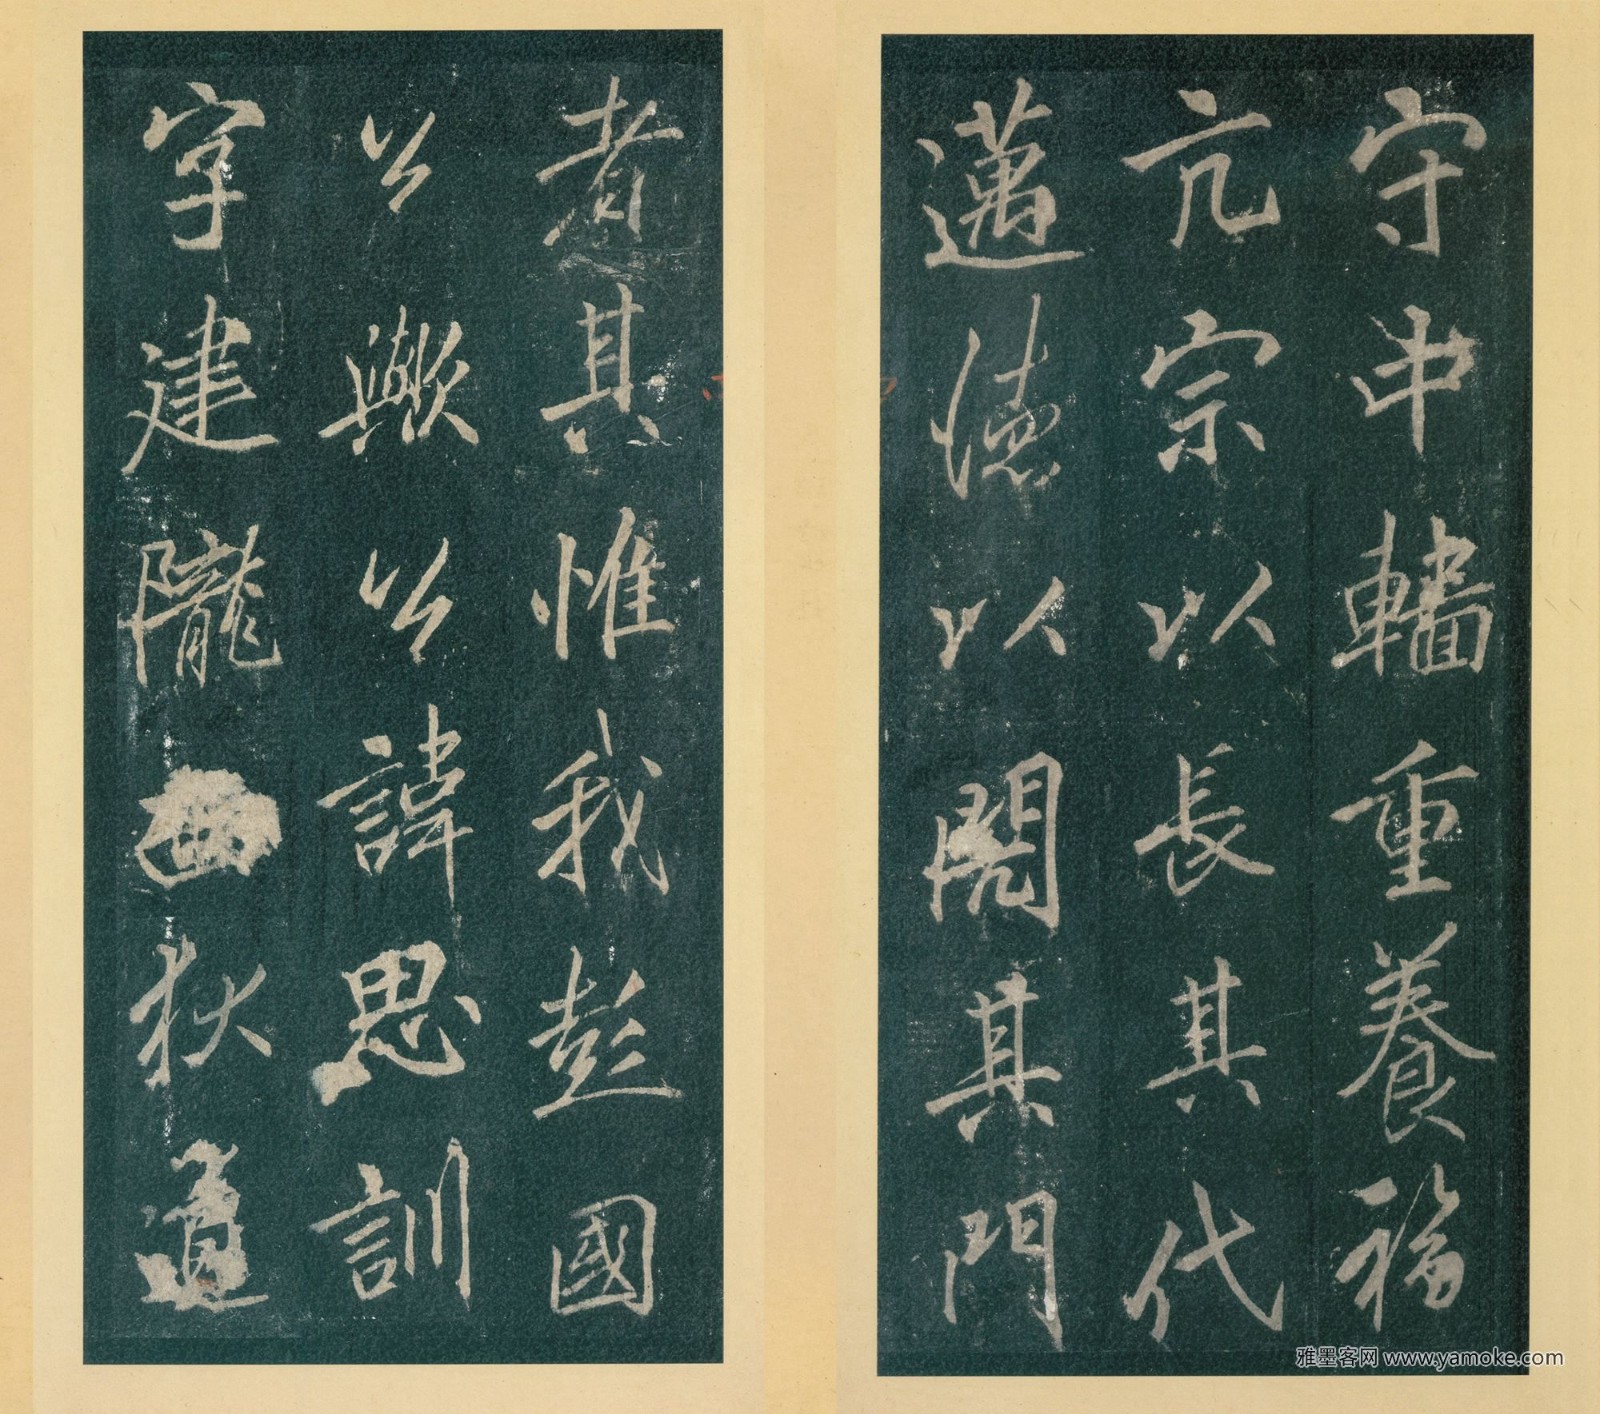 守中轖重養福
亢宗以長其代
邁德以閌其門
者其惟我彭國
公歟公諱思訓
字建隴西狄道
雅墨客网 www.yamoke.com